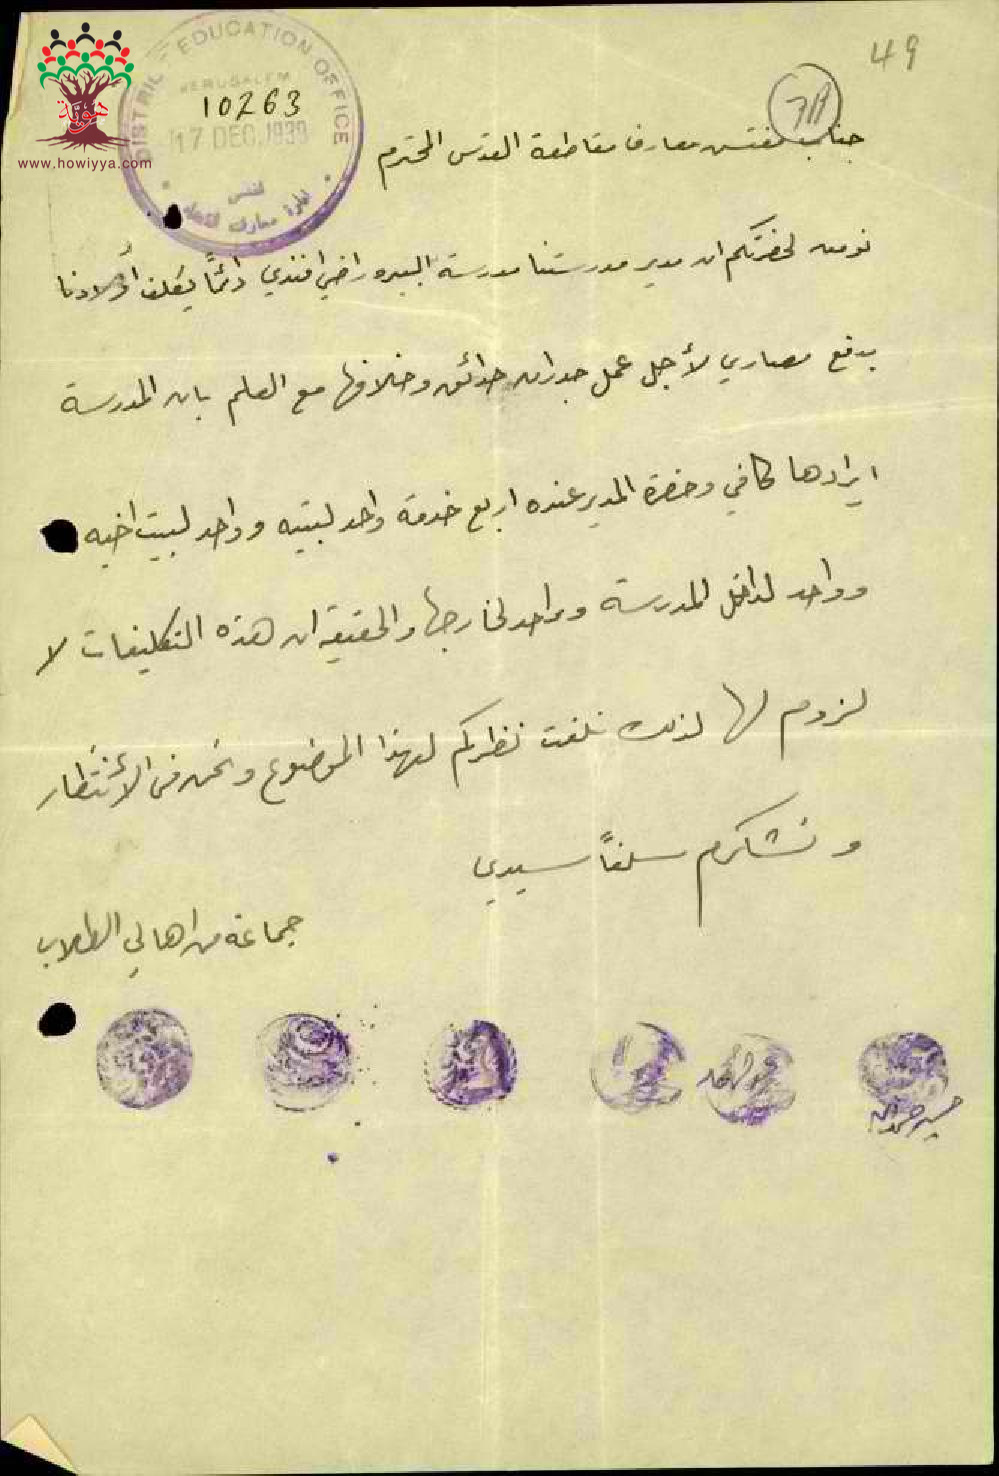 49
DISTRICT EDUCATION OFFICE
JERUSALEM
10263
17 DEC. 1939
هوية
www.howiyya.com
جناب مفتش معارف مقاطعة القدس المحترم
نؤمن لحضرتكم ان مدير مدرستنا مدرسة البيره راضي افندي دائماً يكلف أولادنا
بدفع مصاري لأجل عمل جدران حدائق وخلافها مع العلم بان المدرسة
ايرادها كافي وحضرة المدير عنده اربع خدمة واحد لبيته وواحد لبيت اخيه
وواحد لداخل المدرسة وواحد لخارجها والحقيقة ان هذه التكليفات لا
لزوم لها لذلك نلفت نظركم لهذا الموضوع ونحن في الأنتظار
ونشكركم سلفاً سيدي
جماعة من اهالي الطلاب